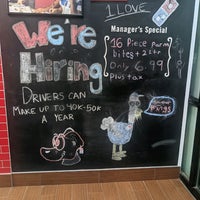 We're
Hiring
DRIVERS CAN
MAKE UP TO 40K-50K
A YEAR
1 LOVE
Manager's Special
16 Piece parm
bites + 2 str
Only 6.99
plus tax